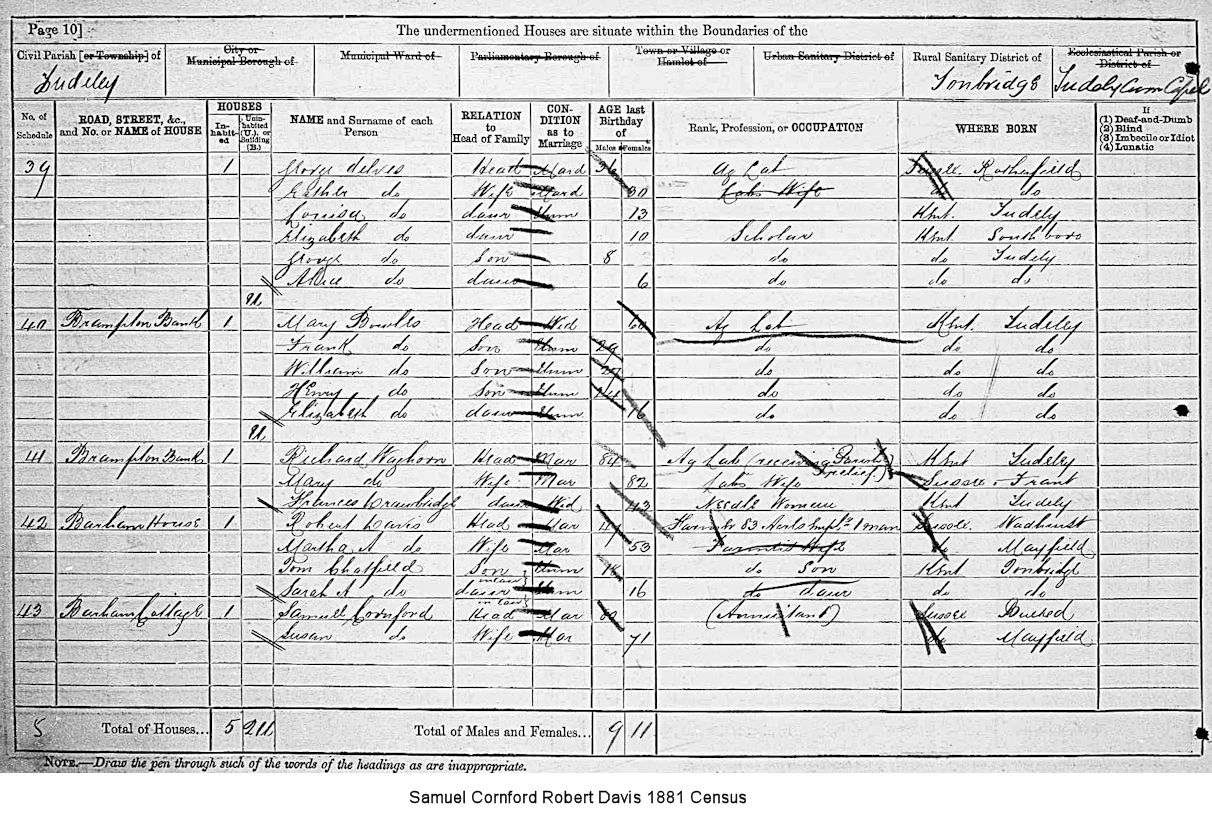 Page 10]
The undermentioned Houses are situate within the Boundaries of the
Civil Parish [or Township] of
City or Municipal Borough of
Municipal Ward of
Parliamentary Borough of
Town or Village or Hamlet of
Urban Sanitary District of
Rural Sanitary District of
Ecclesiastical Parish or District of
Tudeley Tonbridge Tudely Cum Capel
No. of Schedule
ROAD, STREET, &c., and No. or NAME of HOUSE
HOUSES
In-habit-ed
Unin-habited (U.), or Building (B.)
NAME and Surname of each Person
RELATION to Head of Family
CON-DITION as to Marriage
AGE last Birthday of
Males Females
Rank, Profession, or OCCUPATION
WHERE BORN
If
(1) Deaf-and-Dumb
(2) Blind
(3) Imbecile or Idiot
(4) Lunatic
39 1 George Delves Head Mard Ag Lab Sussex Rotherfield
Esther do Wife Mard 30 Labs Wife do do
Louisa do daur Unm 13 Knt. Tudely
Elizabeth do daur 10 Scholar Knt. Southboro
George do Son 8 do do Tudely
Alice do daur 6 do do do
1U
40 Brampton Bank 1 Mary Bowles Head Wid 60 Ag Lab Knt. Tudeley
Frank do Son Unm 29 do do do
William do Son Unm do do do
Henry do Son Unm do do do
Elizabeth do daur Unm 16 do do do
1U
41 Brampton Bank 1 Richard Waghorn Head Mar 84 Ag Lab (receiving Parish relief) Knt Tudely
Mary do Wife Mar 82 Labs Wife Sussex Frant
Frances daur Wid Needle Woman Knt Tudely
42 Barham House 1 Robert Davis Head Mar Farmer 83 Acres 1 man Sussex Wadhurst
Martha A do Wife Mar 53 Farmers Wife do Mayfield
Tom Chatfield Son in law Unm 16 do Son Knt Tonbridge
Sarah A do daur in law Unm 16 do daur do do
43 Barham Cottage 1 Samuel Cornford Head Mar (Annuitant) Sussex Buxted
Susan do Wife Mar 71 do Mayfield
5 Total of Houses... 5 2U Total of Males and Females... 9 11
NOTE.—Draw the pen through such of the words of the headings as are inappropriate.
Samuel Cornford Robert Davis 1881 Census